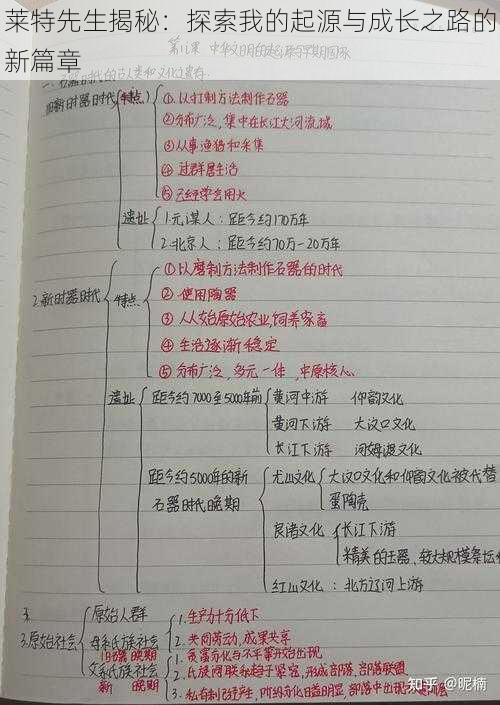 莱特先生揭秘：探索我的起源与成长之路的
新篇章
第1课 中华文明的起源与早期国家
一、石器时代的古人类和文化遗存
旧新时器时代 特点
①以打制方法制作石器
②分布广泛，集中在长江大河流域
③从事渔猎和采集
④过群居生活
⑤已经学会用火
遗址
1.元谋人：距今约170万年
2.北京人：距今约70万-20万年
2.新时器时代 特点
①以磨制方法制作石器的时代
②使用陶器
③人从始原始农业，饲养家畜
④生活逐渐稳定
⑤分布广泛，多元一体，中原核心
遗址 距今约7000至5000年前
黄河中游 仰韶文化
黄河下游 大汶口文化
长江下游 河姆渡文化
距今约5000年的新
石器时代晚期
尤山文化
大汶口文化和仰韶文化被代替
蛋陶壳
良渚文化
长江下游
精美的玉器、较大规模祭坛
红山文化：北方辽河上游
3.
3.原始社会
原始人群
母系氏族社会
旧石器晚期
父系氏族社会
新 晚期
1.生产力十分低下
2.共同劳动，成果共享
1.贫富分化与不平等开始出现
2.氏族间联系趋于紧密，形成部落、部落联盟
3.私有制已经产生，阶级分化日益明显，部落中出现
知乎 @昵楠